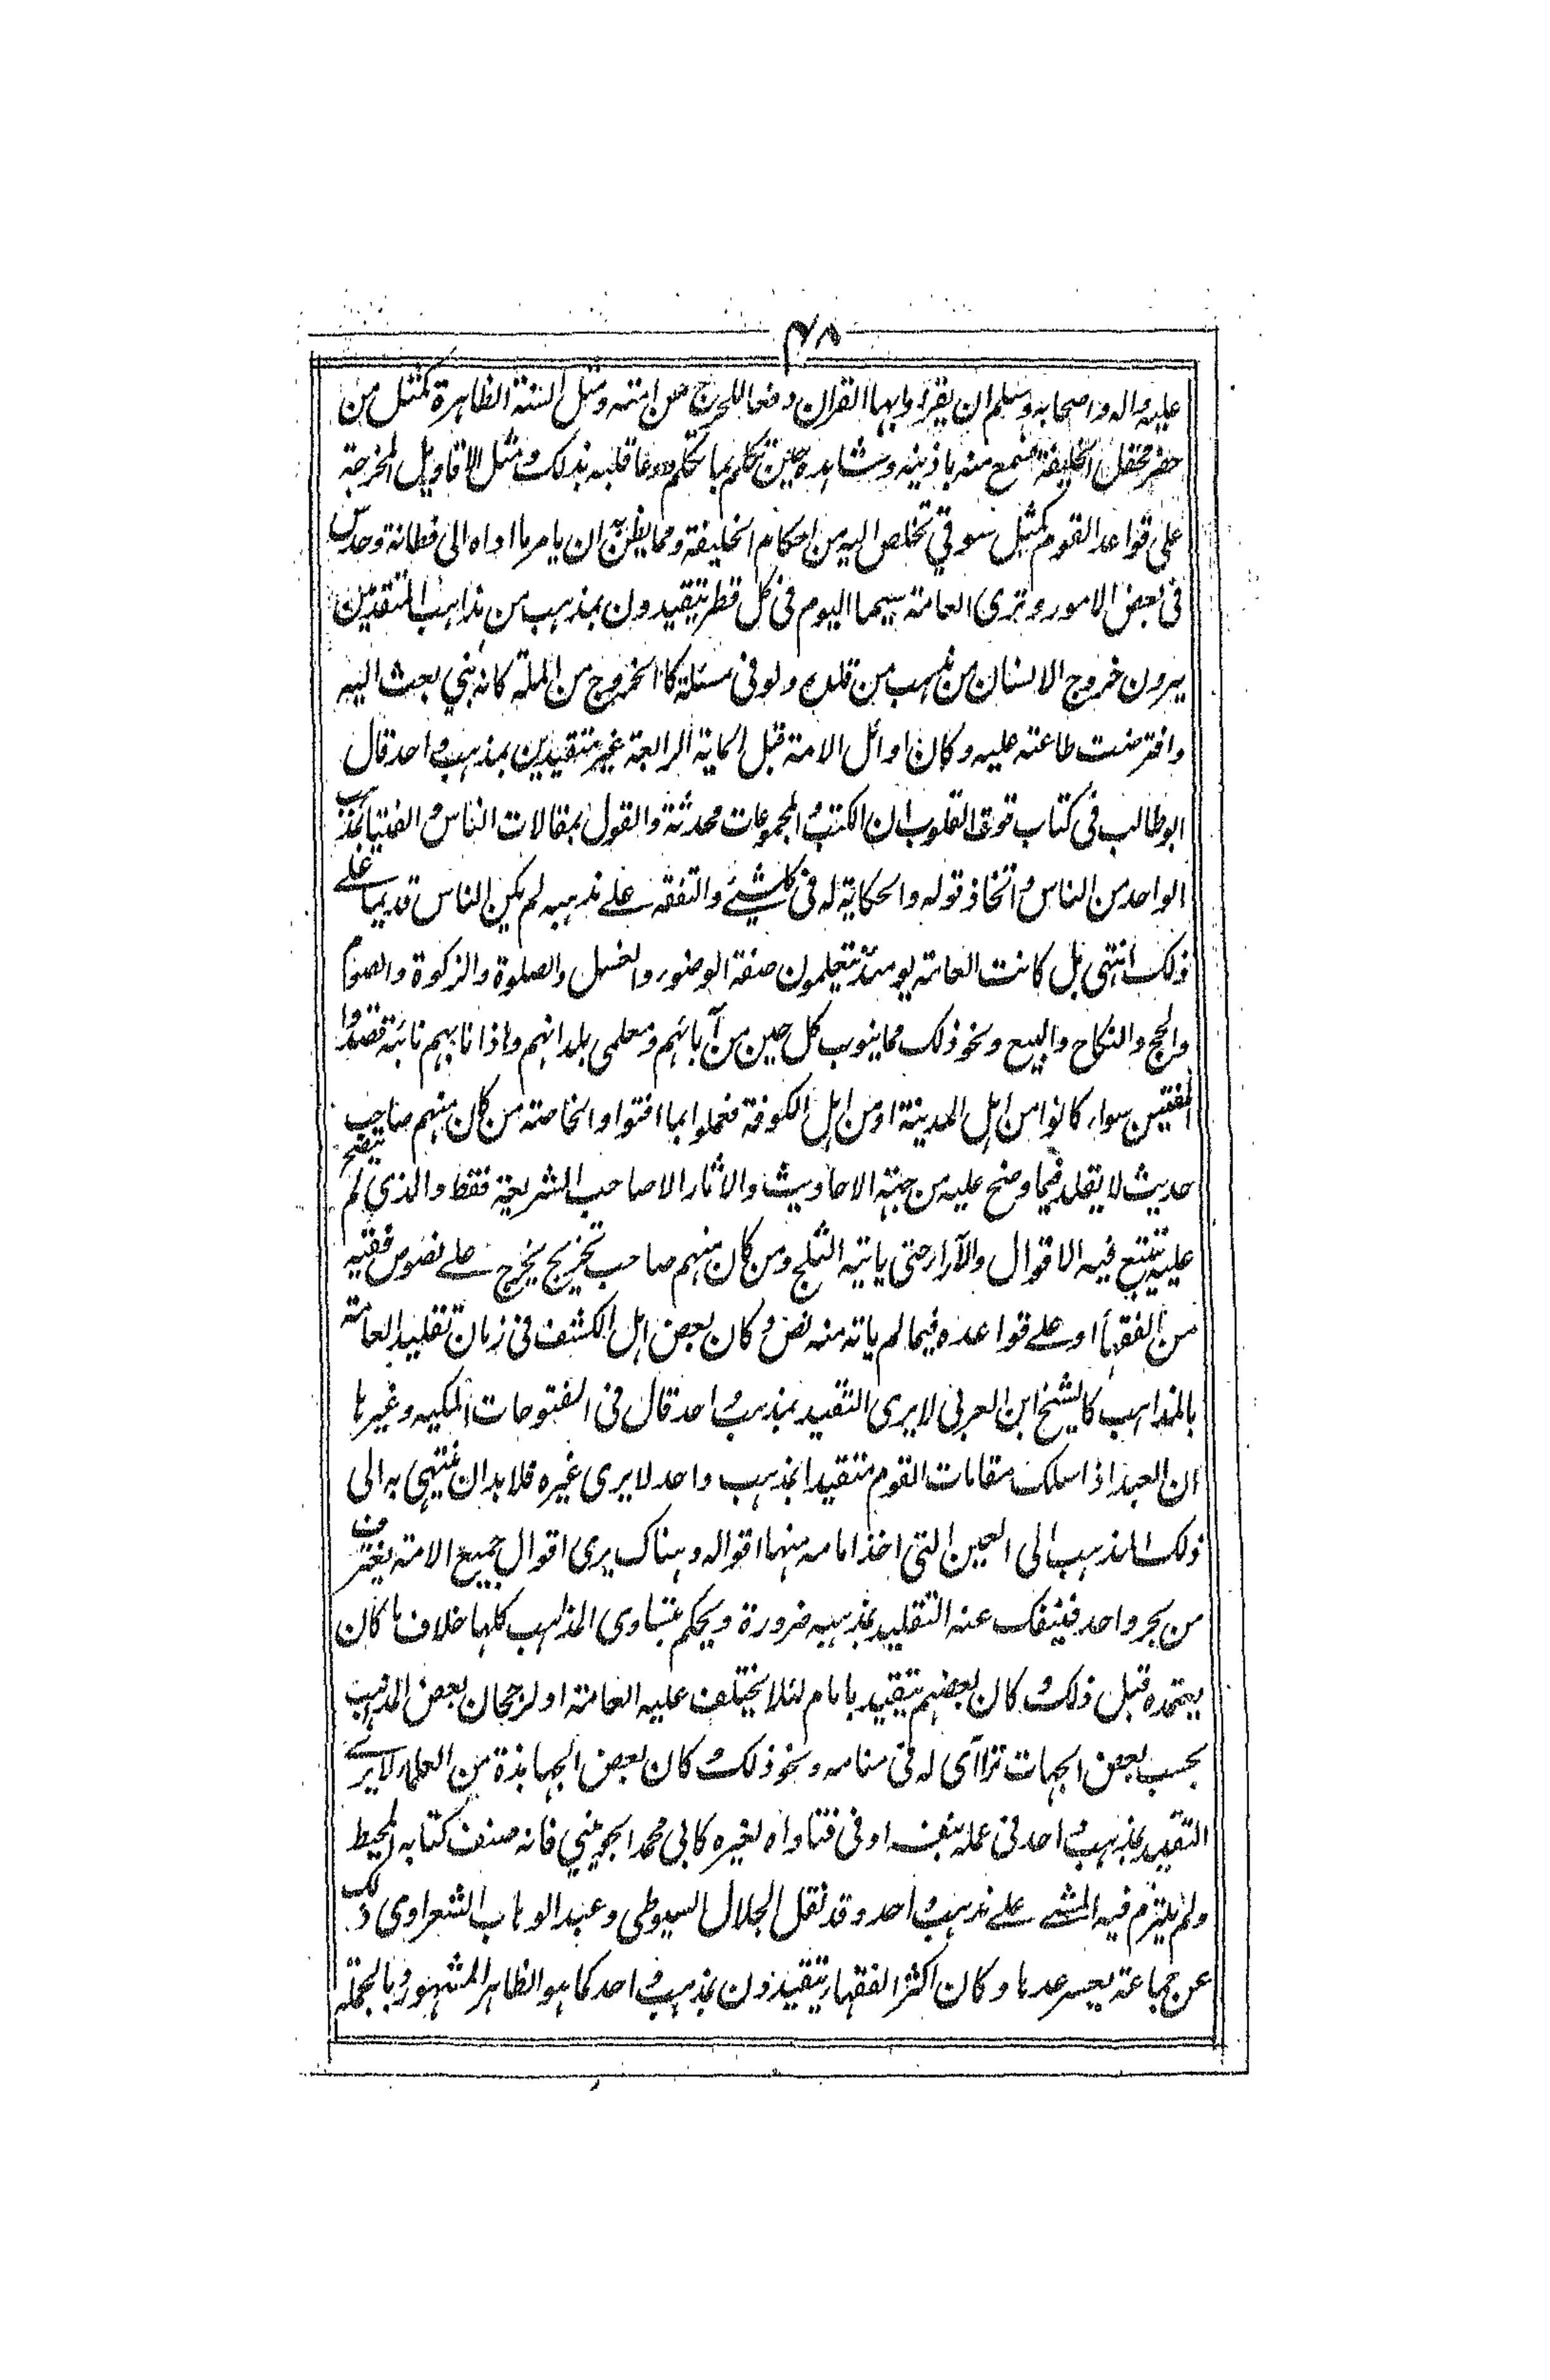 ٤٨
عليه واله واصحابه وسلم ان يقرؤا بها القران دفعا للحرج من امته ومثل السنة الظاهرة كمثل من
حضر محفل الخليفة فسمع منه باذنيه وشاهده حين تكلم بما تكلم ووعا قلبه بذلك ومثل الاقاويل المخرجة
على قواعد القوم كمثل سوقي تخلص اليه من احكام الخليفة ومما يظن به ان يامر ما اداه الى فطانة وحدس
فى بعض الامور وترى العامة سيما اليوم فى كل قطر يتقيدون بمذهب من مذاهب المتقدمين
يرون خروج الانسان من مذهب من قلده ولو فى مسئلة كالخروج من الملة كانه نبي بعث اليه
وافترضت طاعته عليه وكان اوائل الامة قبل الماية الرابعة غير متقيدين بمذهب واحد قال
ابو طالب فى كتاب قوت القلوب ان الكتب والمجموعات محدثة والقول بمقالات الناس والفتيا بمذهب
الواحد من الناس واتخاذ قوله والحكاية له فى كل شئ والتفقه على مذهبه لم يكن الناس قديما على
ذلك انتهى بل كانت العامة يومئذ يتعلمون صفة الوضوء والغسل والصلوة والزكوة والصوم
والحج والنكاح والبيع ونحو ذلك مما ينوب كل حين من آبائهم ومعلمى بلدانهم واذا نابهم نائبة قصدوا
المفتيين سواء كانوا من اهل المدينة او من اهل الكوفة فعملوا بما افتوا والخاصة من كان منهم صاحب
حديث لا يقلد فيما وضح عليه من جهة الاحاديث والاثار الا صاحب الشريعة فقط والذى لم يتضح
عليه يتتبع فيه الاقوال والآراء حتى ياتيه الثلج ومن كان منهم صاحب تخريج يخرج على نصوص فقيه
من الفقهاء او على قواعده فيما لم ياته منه نص وكان بعض اهل الكشف فى زمان تقليد العامة
بالمذاهب كالشيخ ابن العربى لا يرى التقيد بمذهب واحد قال فى الفتوحات المكيه وغيرها
ان العبد اذا سلك مقامات القوم متقيدا بمذهب واحد لا يرى غيره فلا بد ان ينتهى به الى
ذلك المذهب الى العين التى اخذ امامه منها اقواله وهناك يرى اقوال جميع الامة يغترفون
من بحر واحد فينفك عنه التقليد بمذهبه ضرورة ويحكم بتساوى المذاهب كلها خلاف ما كان
يعتمده قبل ذلك وكان بعضهم يتقيد بامام لئلا يختلف عليه العامة او لرجحان بعض المذاهب
بحسب بعض الجهات تراآى له فى منامه ونحو ذلك وكان بعض الجهابذة من العلماء لا يرى
التقيد بمذهب واحد فى عمله بنفسه او فى فتاواه لغيره كابى محمد الجوينى فانه صنف كتابه المحيط
ولم يلتزم فيه المشى على مذهب واحد وقد نقل الجلال السيوطى وعبد الوهاب الشعراوى ذلك
عن جماعة يعسر عدها وكان اكثر الفقهاء يتقيدون بمذهب واحد كما هو الظاهر المشهور وبالجملة